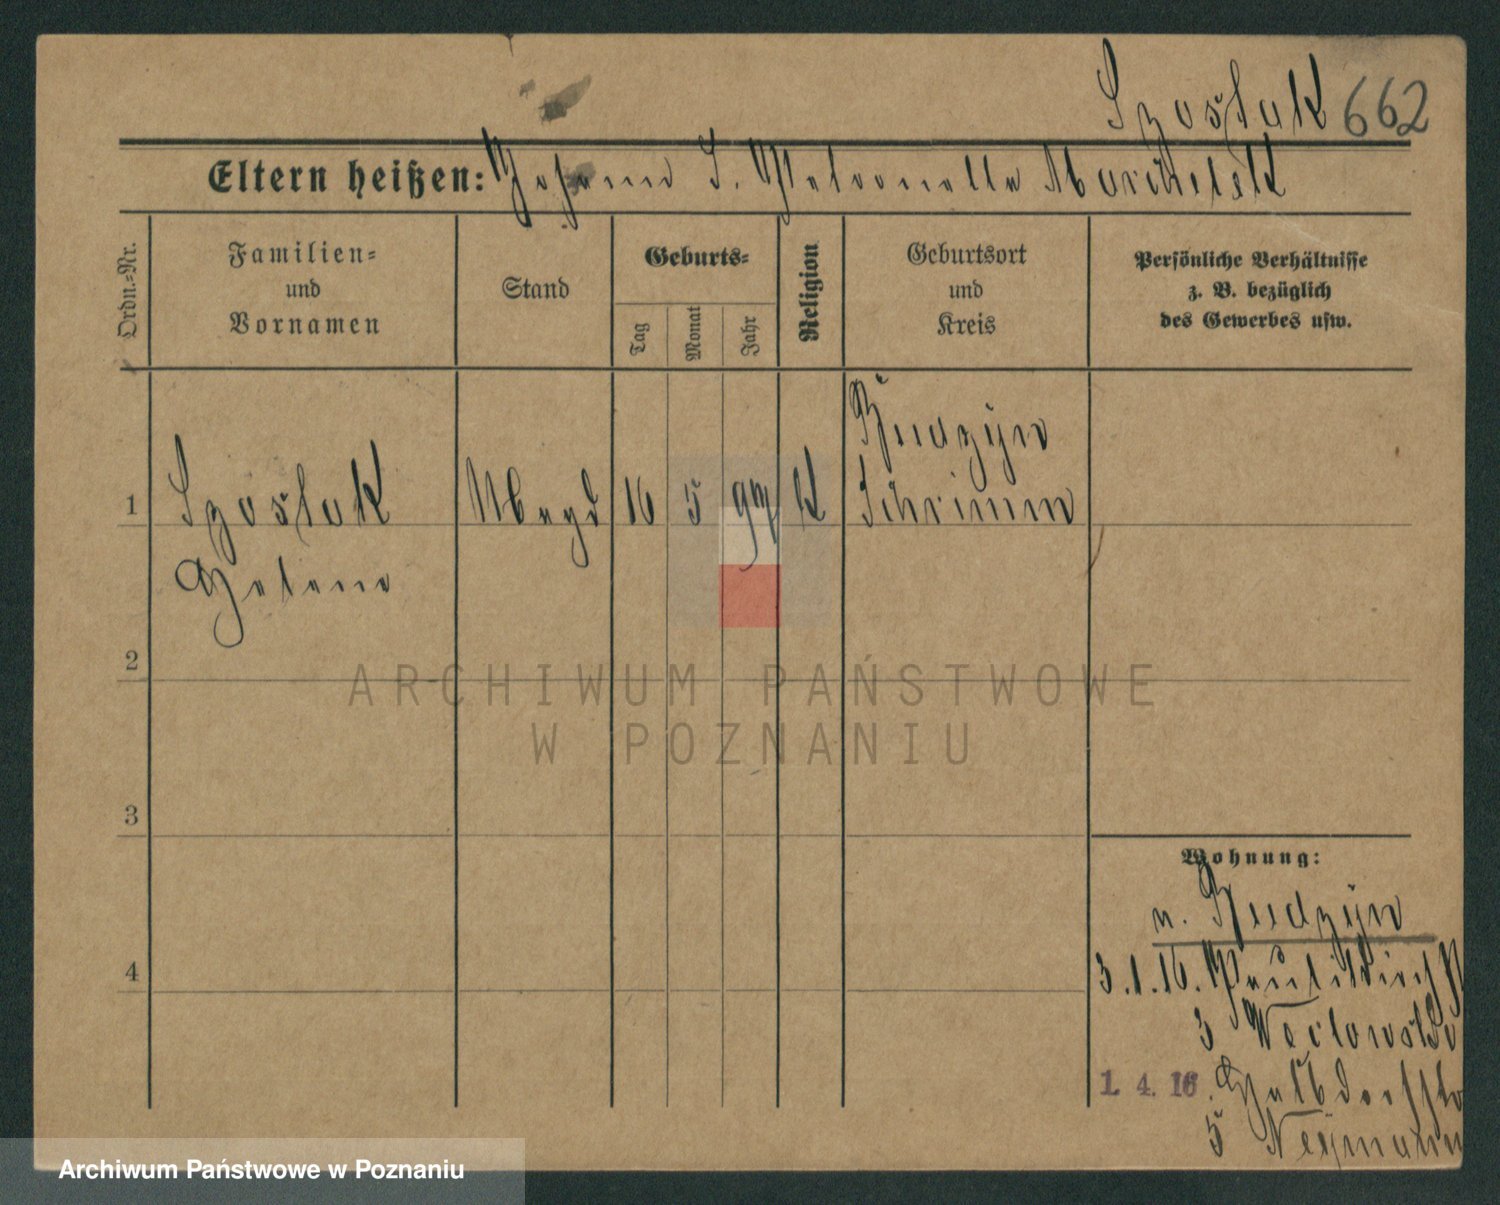 Szostak 662
Eltern heißen: Johann u. Petronella
Ordn.-Nr.
Familien-
und
Vornamen
Stand
Geburts-
Tag
Monat
Jahr
Religion
Geburtsort
und
Kreis
Persönliche Verhältnisse
z. B. bezüglich
des Gewerbes usw.
Budzyn
1 Szostak Magd 16 5 97 K Schrimm
Helene
2
ARCHIWUM PAŃSTWOWE
W POZNANIU
3
Wohnung:
n. Budzyn
4
3.1.16. Paulikirchst
3 Weclowski
1. 4. 16. Halbdorfstr
5 Neymann
Archiwum Państwowe w Poznaniu